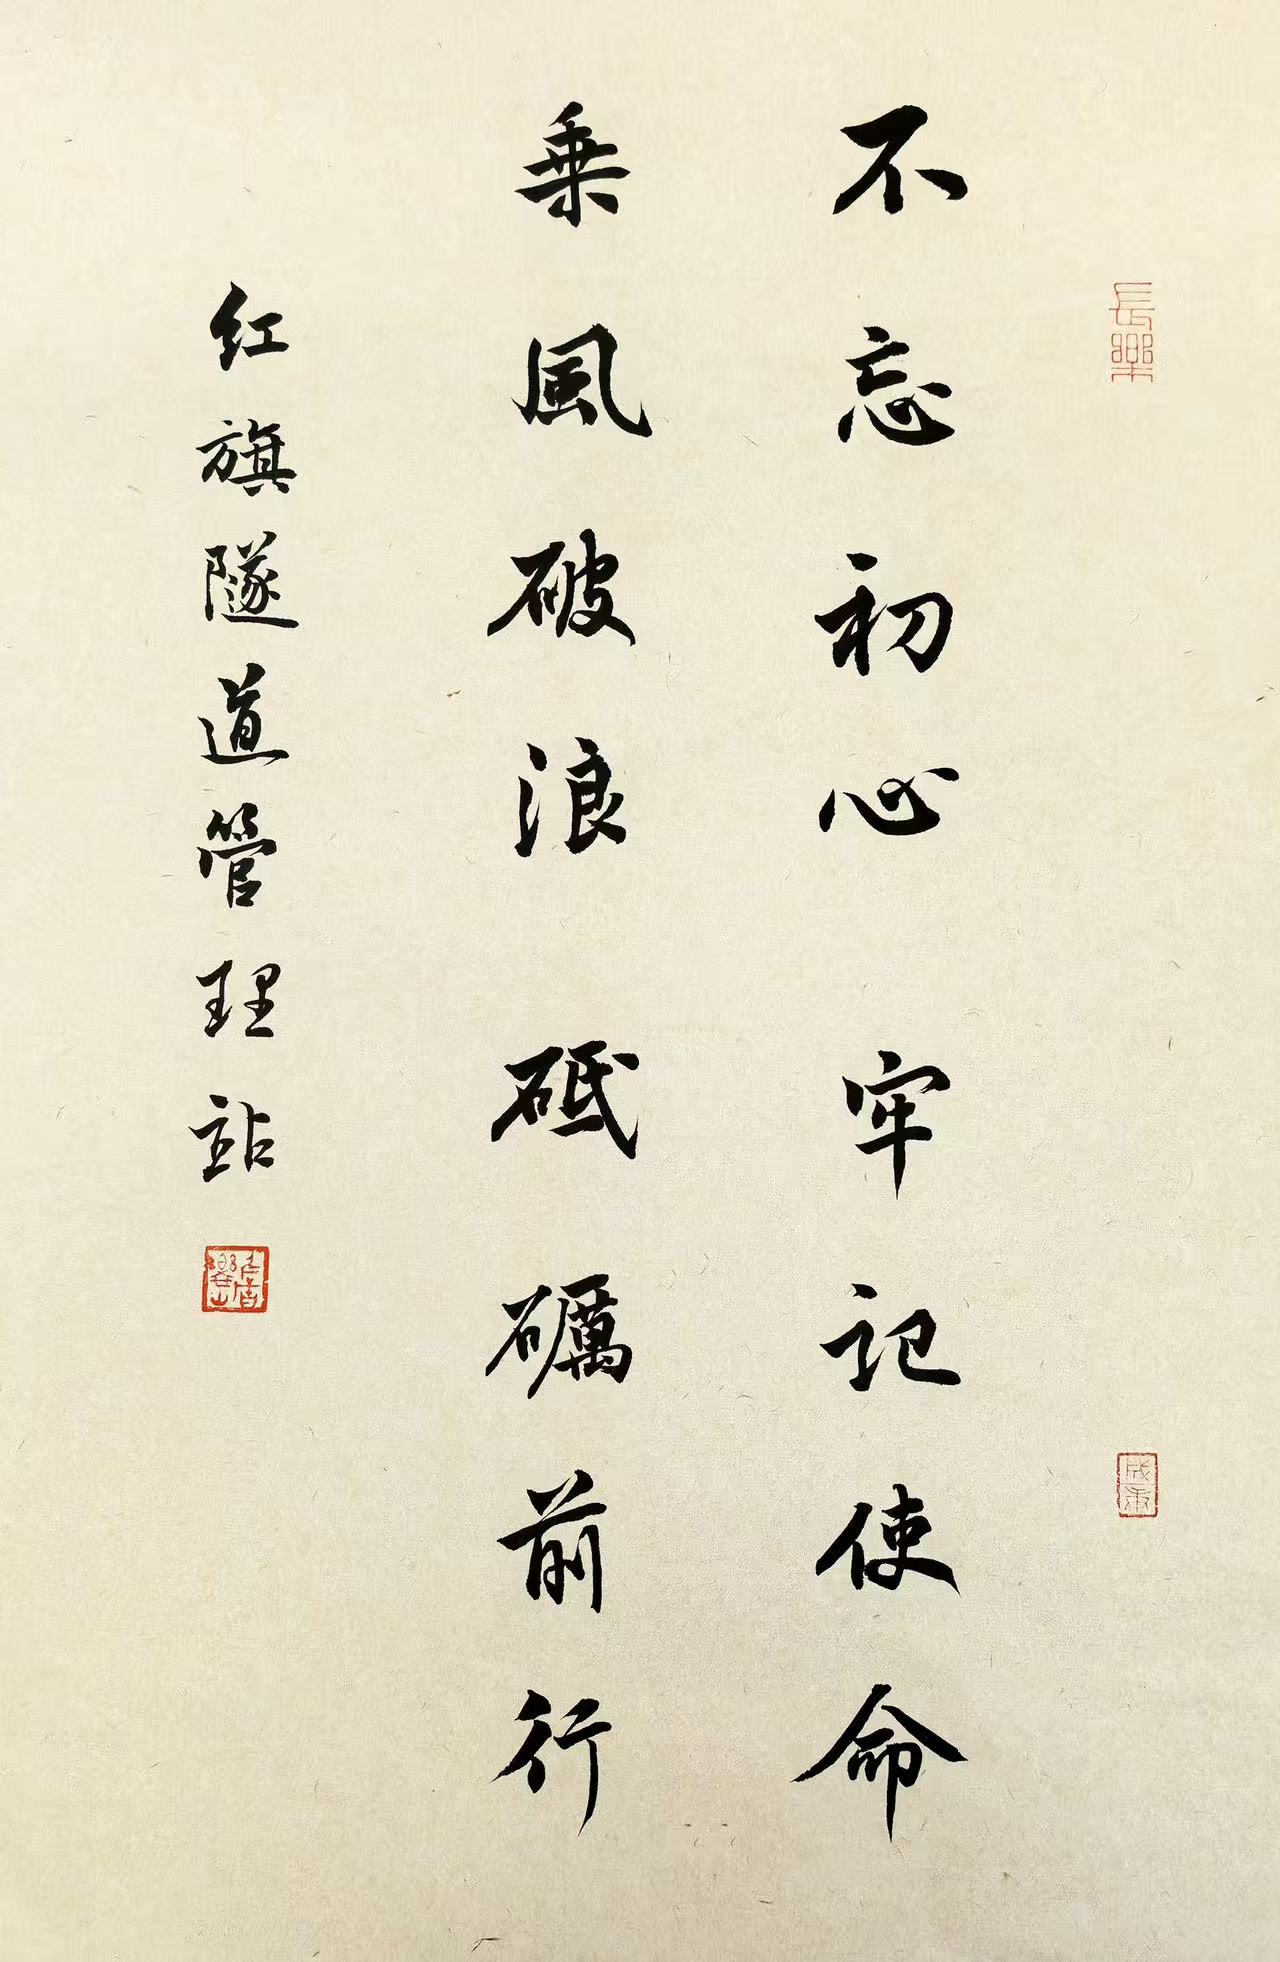 不忘初心 牢记使命
乘風破浪 砥礪前行
红旗隧道管理站
長樂